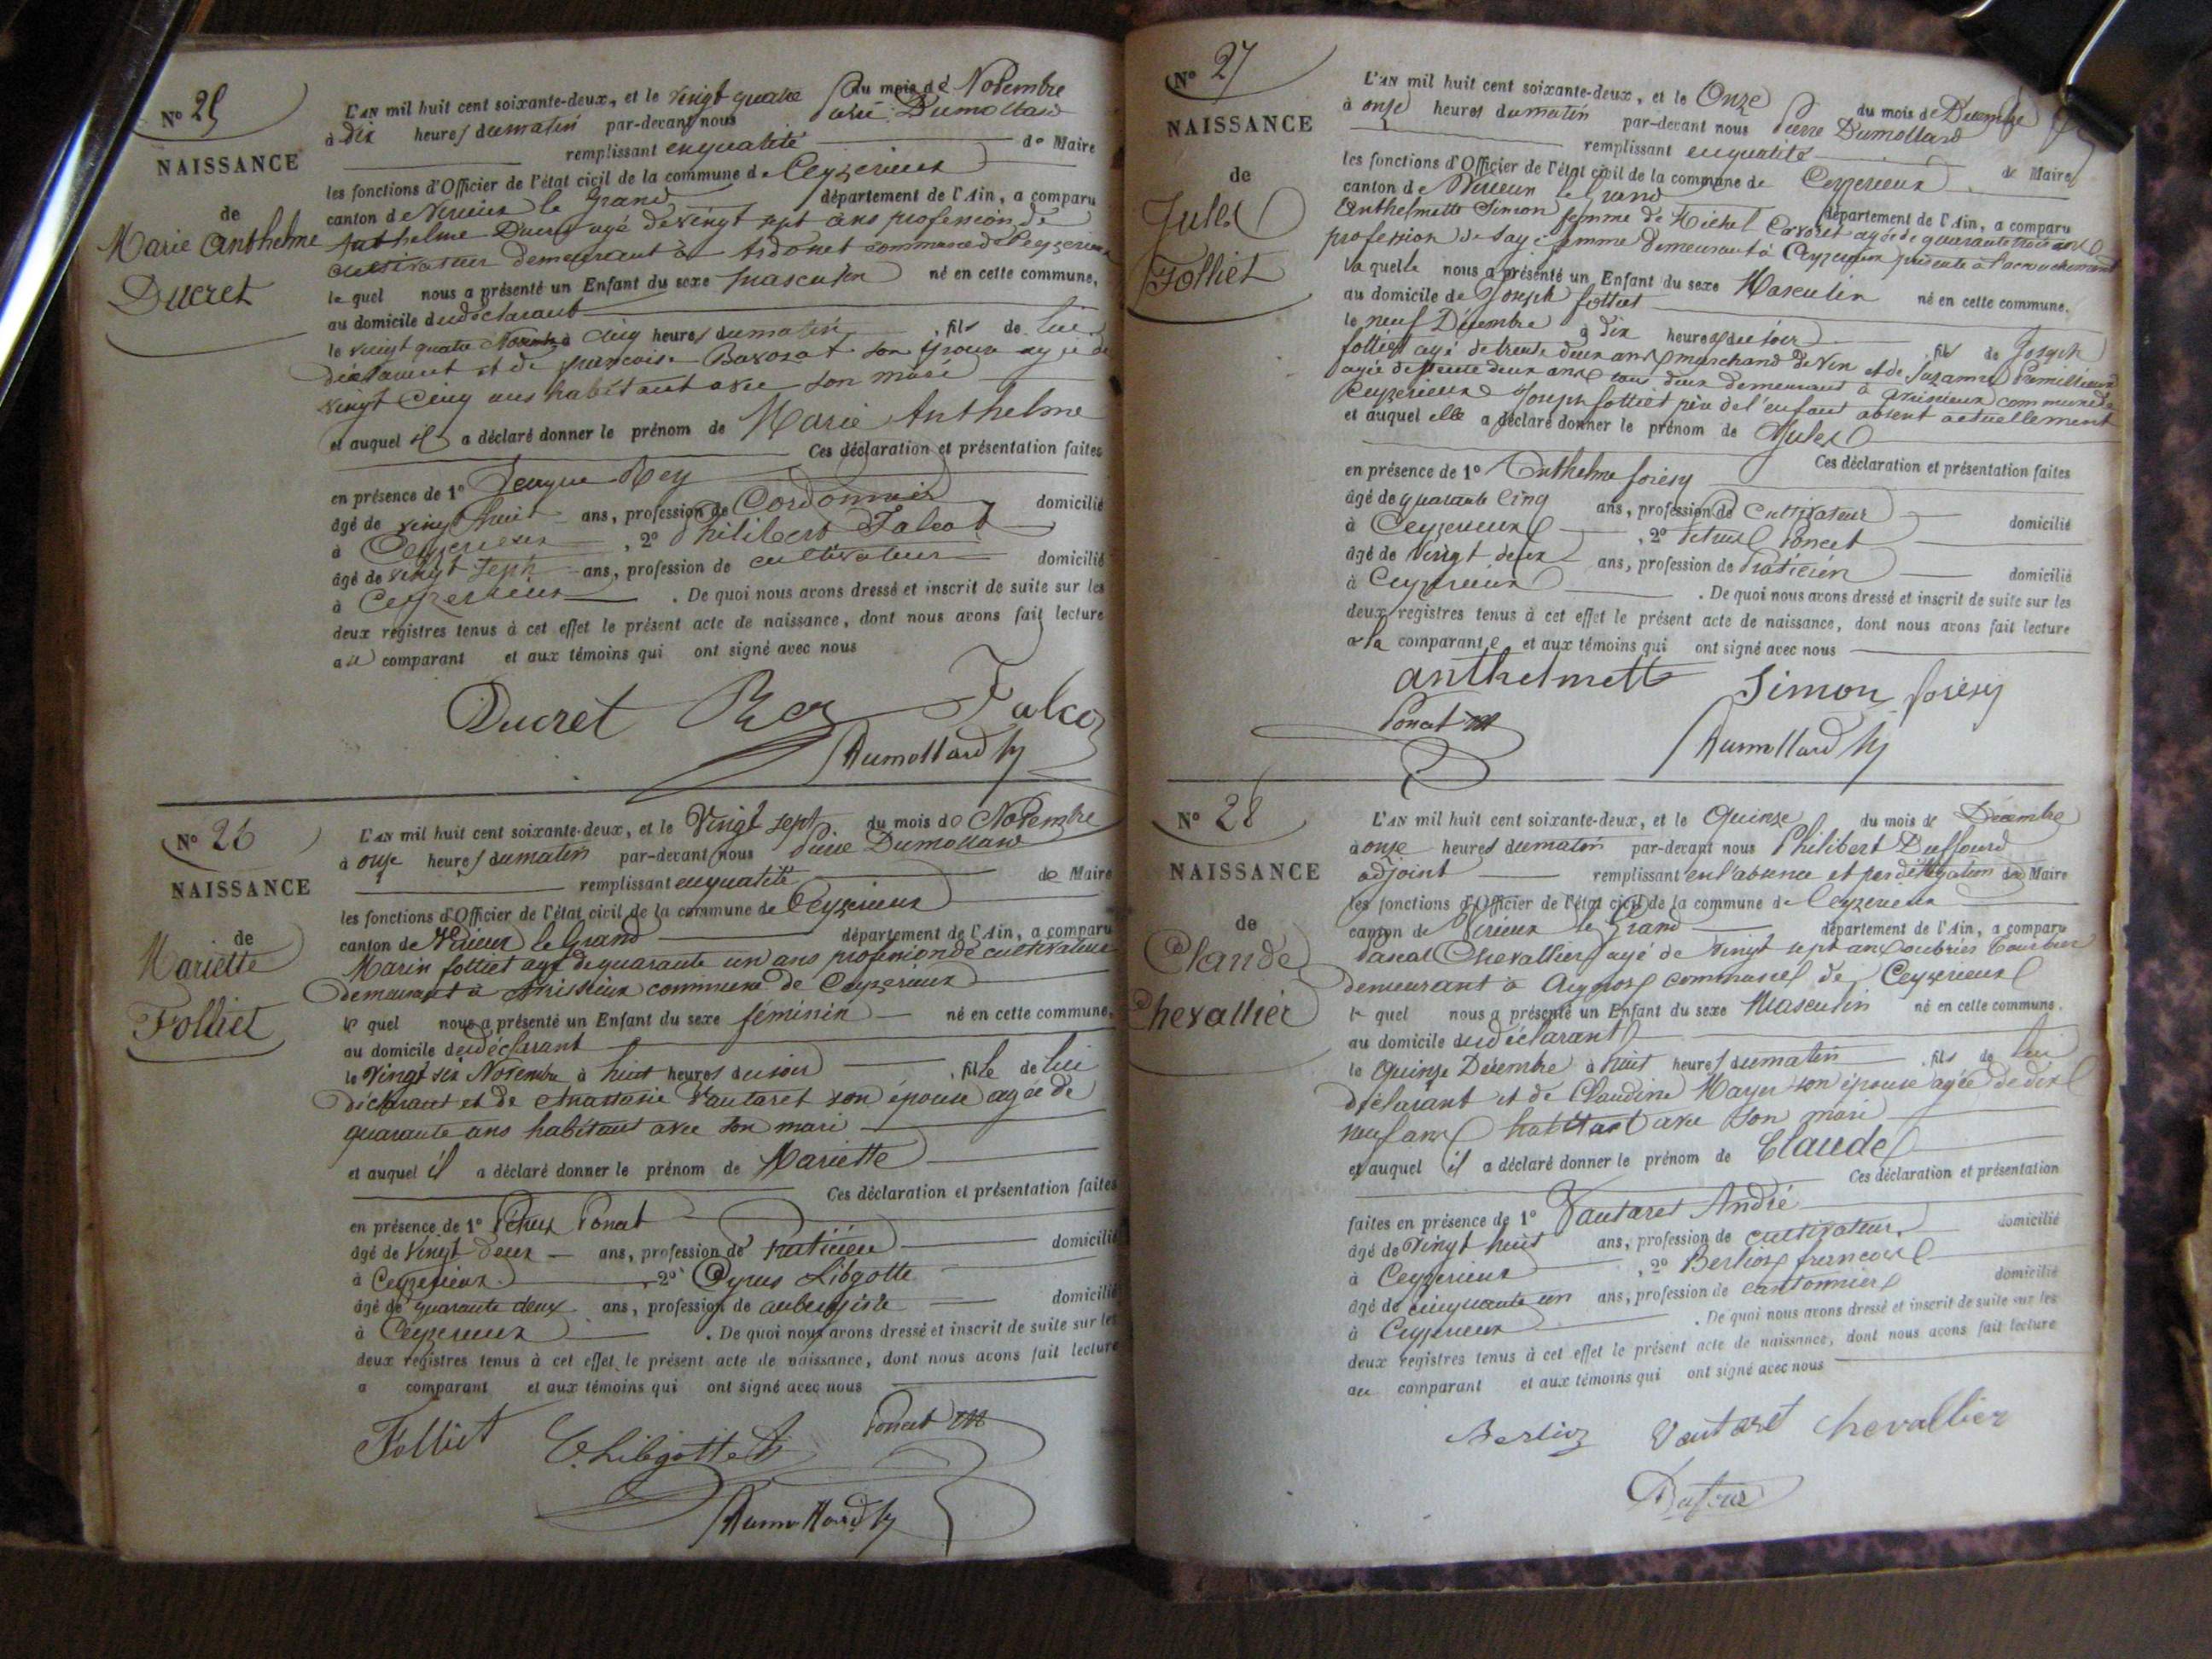 N° 25
NAISSANCE
de
Marie Anthelme
Ducret
L'AN mil huit cent soixante-deux, et le vingt quatre du mois de Novembre
à dix heures du matin par-devant nous Dumollard
remplissant en qualité de Maire
les fonctions d'Officier de l'état civil de la commune de Ceyzerieux
canton de Virieux le Grand département de l'Ain, a comparu
Anthelme Ducret agé de vingt sept ans profession de
cultivateur demeurant à Ardonet commune de Ceyzerieux
le quel nous a présenté un Enfant du sexe masculin né en cette commune,
au domicile du déclarant
le vingt quatre Novembre à cinq heures du matin, fils de lui
déclarant et de françoise Bavosat son épouse agée de
vingt Cinq ans habitant avec son mari
et auquel il a déclaré donner le prénom de Marie Anthelme
Ces déclaration et présentation faites
en présence de 1° Rey
âgé de vingt huit ans, profession de Cordonnier domicilié
à Ceyzerieux, 2° Philibert Falcoz
âgé de vingt sept ans, profession de cultivateur domicilié
à Ceyzerieux. De quoi nous avons dressé et inscrit de suite sur les
deux registres tenus à cet effet le présent acte de naissance, dont nous avons fait lecture
au comparant et aux témoins qui ont signé avec nous
Ducret Rey Falcoz
Dumollard
N° 26
NAISSANCE
de
Mariette
Folliet
L'AN mil huit cent soixante-deux, et le Vingt sept du mois de Novembre
à onze heures du matin par-devant nous Pierre Dumollard
remplissant en qualité de Maire
les fonctions d'Officier de l'état civil de la commune de Ceyzerieux
canton de Virieux le Grand département de l'Ain, a comparu
Marin folliet agé de quarante un ans profession de cultivateur
demeurant à Avrissieux commune de Ceyzerieux
le quel nous a présenté un Enfant du sexe féminin né en cette commune,
au domicile du déclarant
le Vingt six Novembre à huit heures du soir, fille de lui
déclarant et de Anastasie Vautaret son épouse agée de
quarante ans habitant avec son mari
et auquel il a déclaré donner le prénom de Mariette
Ces déclaration et présentation faites
en présence de 1° Pétrus Poncet
âgé de vingt deux ans, profession de Praticien domicilié
à Ceyzerieux 2° Cyrus Libgotte
âgé de quarante deux ans, profession de aubergiste domicilié
à Ceyzerieux. De quoi nous avons dressé et inscrit de suite sur les
deux registres tenus à cet effet le présent acte de naissance, dont nous avons fait lecture
a comparant et aux témoins qui ont signé avec nous
Folliet C. Libgotte Poncet
Dumollard
N° 27
NAISSANCE
de
Jules
Folliet
L'AN mil huit cent soixante-deux, et le Onze du mois de Décembre
à onze heures du matin par-devant nous Pierre Dumollard
remplissant en qualité de Maire
les fonctions d'Officier de l'état civil de la commune de Ceyzerieux
canton de Virieux le Grand département de l'Ain, a comparu
Anthelmette Simon femme de Michel agée de quarante trois ans
profession de sage femme demeurant à Ceyzerieux présente à l'accouchement
la quelle nous a présenté un Enfant du sexe Masculin né en cette commune.
au domicile de Joseph folliet
le neuf Décembre à dix heures du soir, fils de Joseph
folliet agé de trente deux ans marchand de vin et de Suzanne
agée de trente deux ans tous deux demeurant à Avrissieux commune de
Ceyzerieux Joseph folliet père de l'enfant absent actuellement
et auquel elle a déclaré donner le prénom de Jules
Ces déclaration et présentation faites
en présence de 1° Anthelme
âgé de quarante Cinq ans, profession de Cultivateur domicilié
à Ceyzerieux, 2° Petrus Poncet
âgé de vingt deux ans, profession de Praticien domicilié
à Ceyzerieux. De quoi nous avons dressé et inscrit de suite sur les
deux registres tenus à cet effet le présent acte de naissance, dont nous avons fait lecture
à la comparante et aux témoins qui ont signé avec nous
anthelmette Simon
Poncet
Dumollard
N° 28
NAISSANCE
de
Claude
Chevallier
L'AN mil huit cent soixante-deux, et le Quinze du mois de Décembre
à onze heures du matin par-devant nous Philibert Duffourd
adjoint remplissant en l'absence et par délégation du Maire
les fonctions d'Officier de l'état civil de la commune de Ceyzerieux
canton de Virieux le Grand département de l'Ain, a comparu
Pascal Chevallier agé de vingt sept ans ouvrier
demeurant à Aignoz commune de Ceyzerieux
le quel nous a présenté un Enfant du sexe Masculin né en cette commune.
au domicile du déclarant
le Quinze Décembre à huit heures du matin, fils de lui
déclarant et de Claudine son épouse agée de dix
neuf ans habitant avec son mari
et auquel il a déclaré donner le prénom de Claude
Ces déclaration et présentation
faites en présence de 1° Vautaret André
âgé de Vingt huit ans, profession de cultivateur domicilié
à Ceyzerieux, 2° Berlioz francois
âgé de cinquante un ans, profession de cantonnier domicilié
à Ceyzerieux. De quoi nous avons dressé et inscrit de suite sur les
deux registres tenus à cet effet le présent acte de naissance, dont nous avons fait lecture
au comparant et aux témoins qui ont signé avec nous
Berlioz Vautaret Chevallier